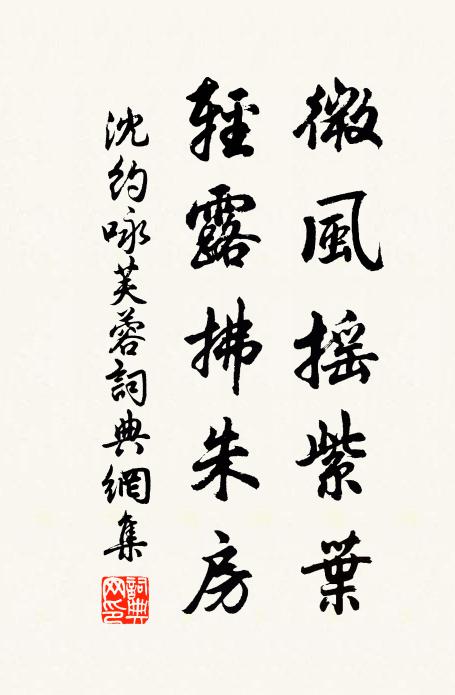 微風摇紫葉
輕露拂朱房
沈約咏芙蓉詞典網集
詞典网印